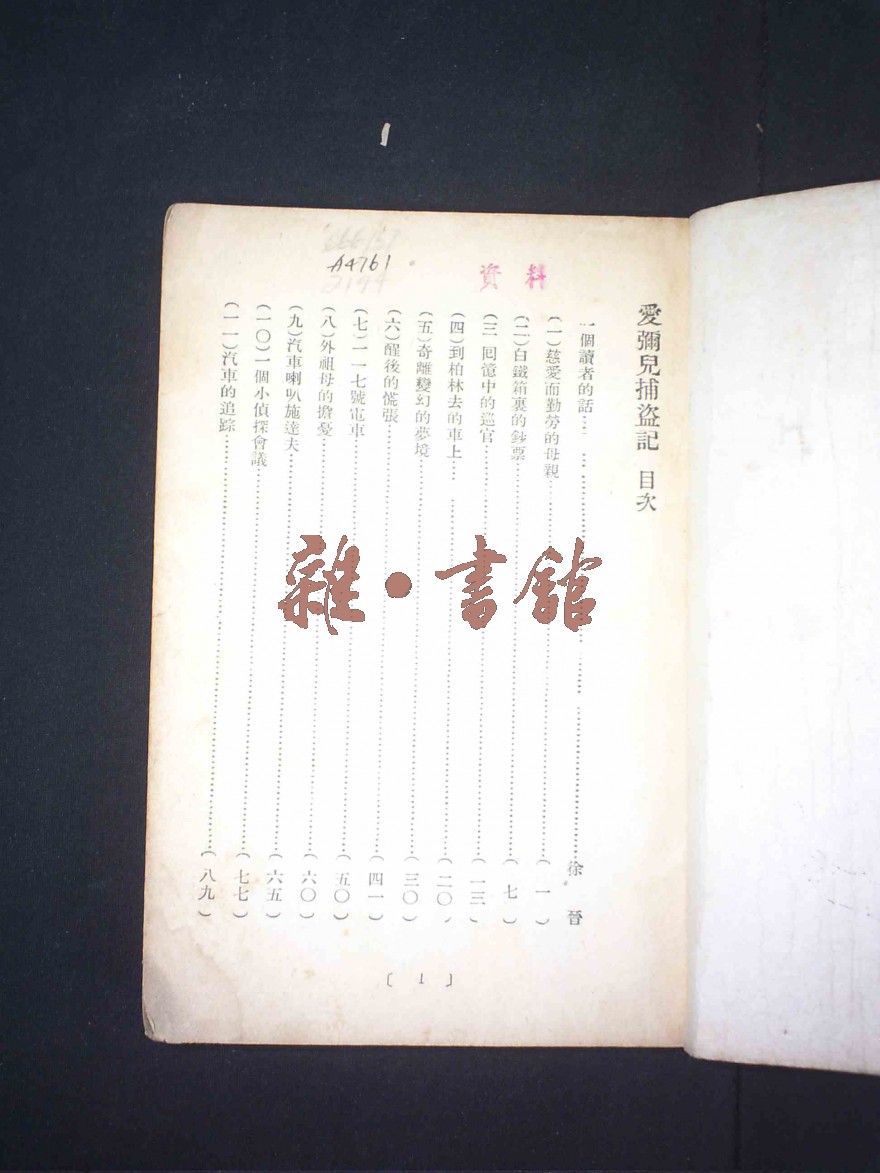 A4761
資料
愛彌兒捕盜記 目次
一個讀者的話……徐晉
(一)慈愛而勤勞的母親……(一)
(二)白鐵箱裏的鈔票……(七)
(三)囘憶中的巡官……(一三)
(四)到柏林去的車上……(二〇)
(五)奇離變幻的夢境……(三〇)
(六)醒後的慌張……(四一)
(七)一一七號電車……(五〇)
(八)外祖母的擔憂……(六〇)
(九)汽車喇叭施達夫……(六五)
(一〇)一個小偵探會議……(七七)
(一一)汽車的追踪……(八九)
〔1〕
雜·書館